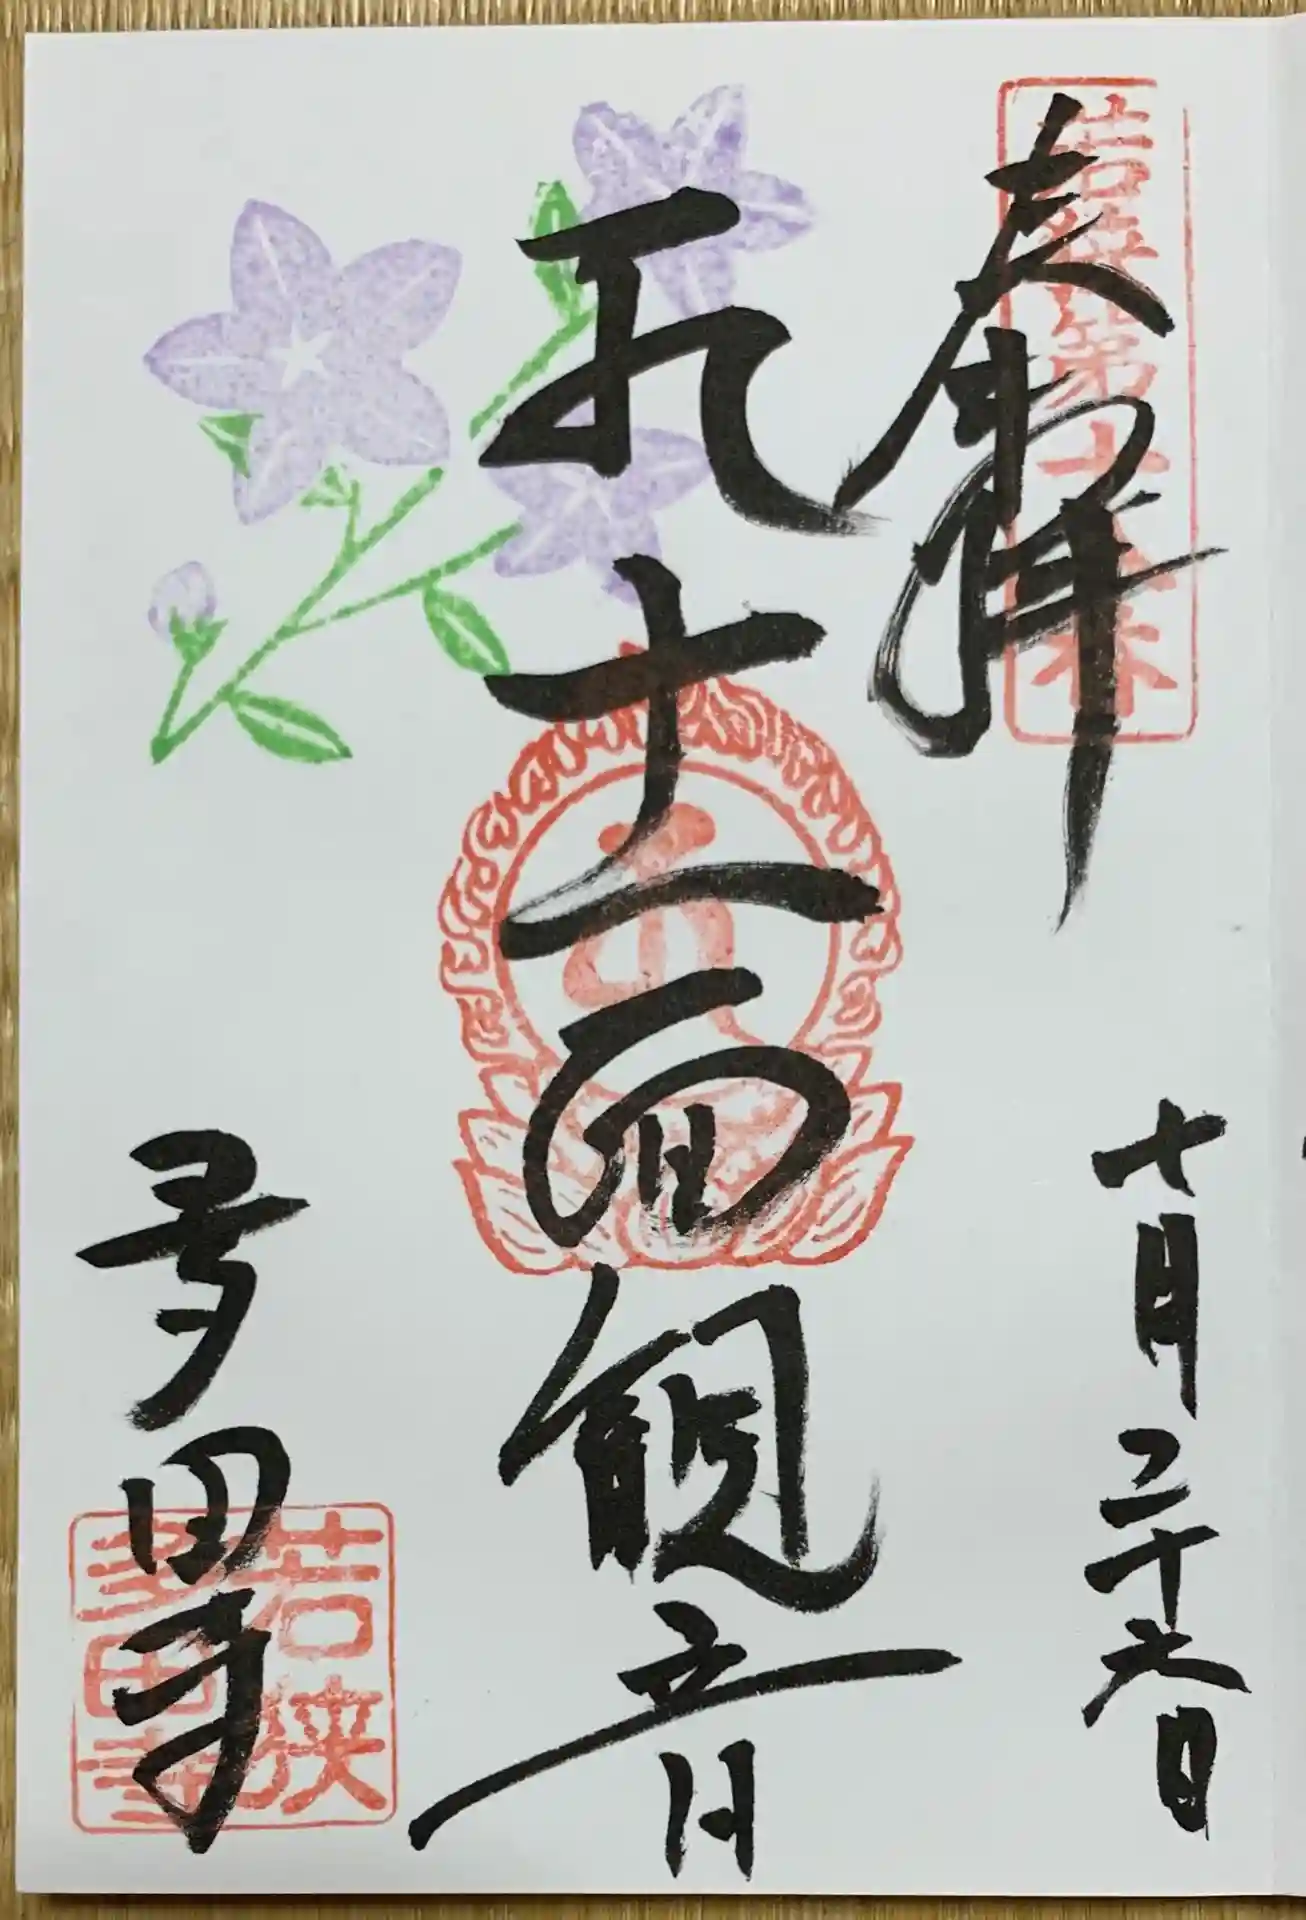 奉拝
若狭第十番
十月二十六日
十一面観音
多田寺
若狭
多田寺